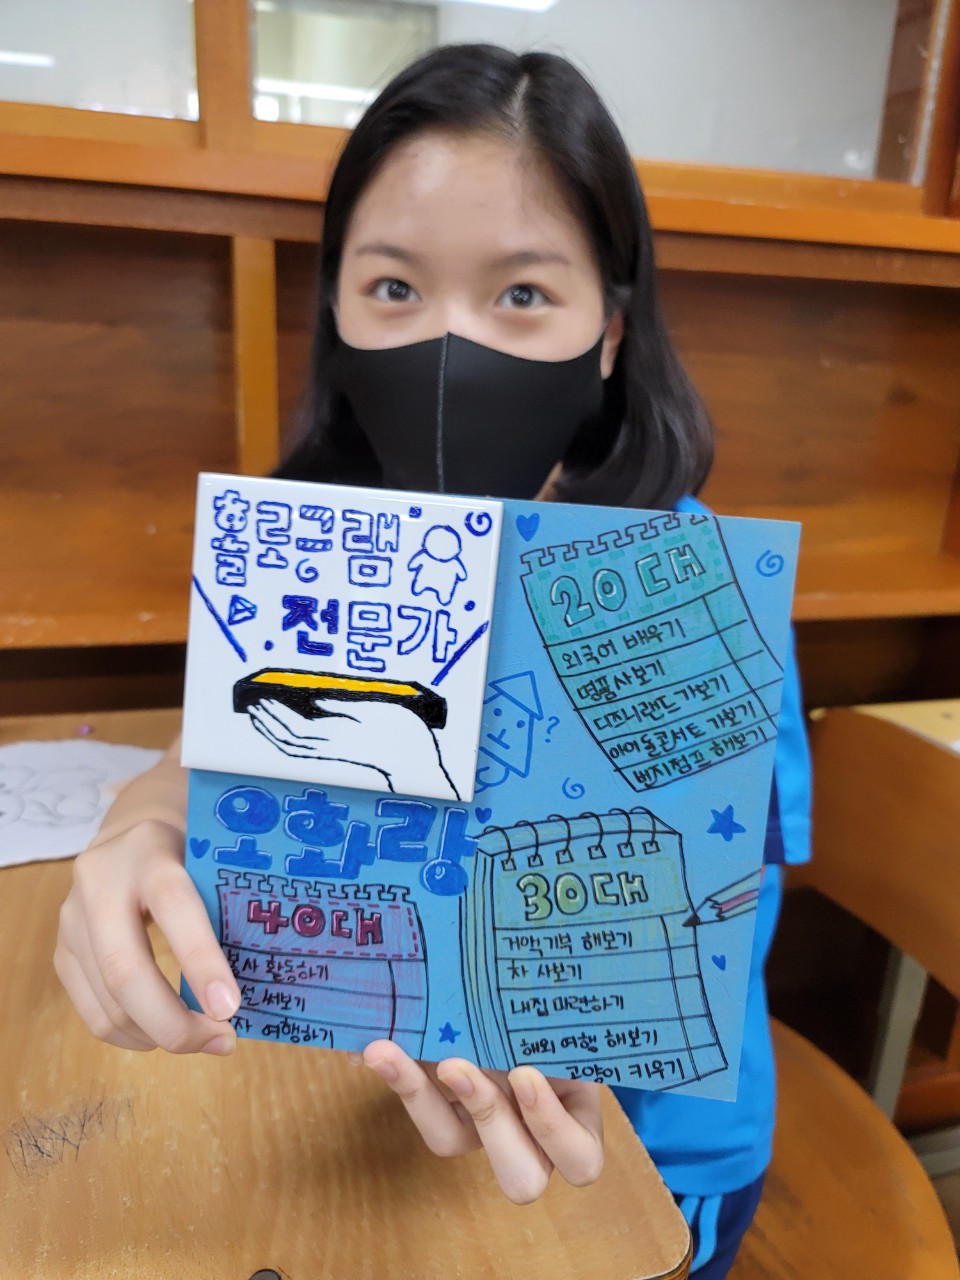 홀로그램
전문가
20대
외국어 배우기
명품사기
디즈니랜드 가보기
아이돌콘서트 가보기
번지점프 해보기
?
오화랑
40대
봉사 활동하기
설 써보기
자 여행하기
30대
거액기부 해보기
차 사보기
내집 마련하기
해외 여행 해보기
고양이 키우기